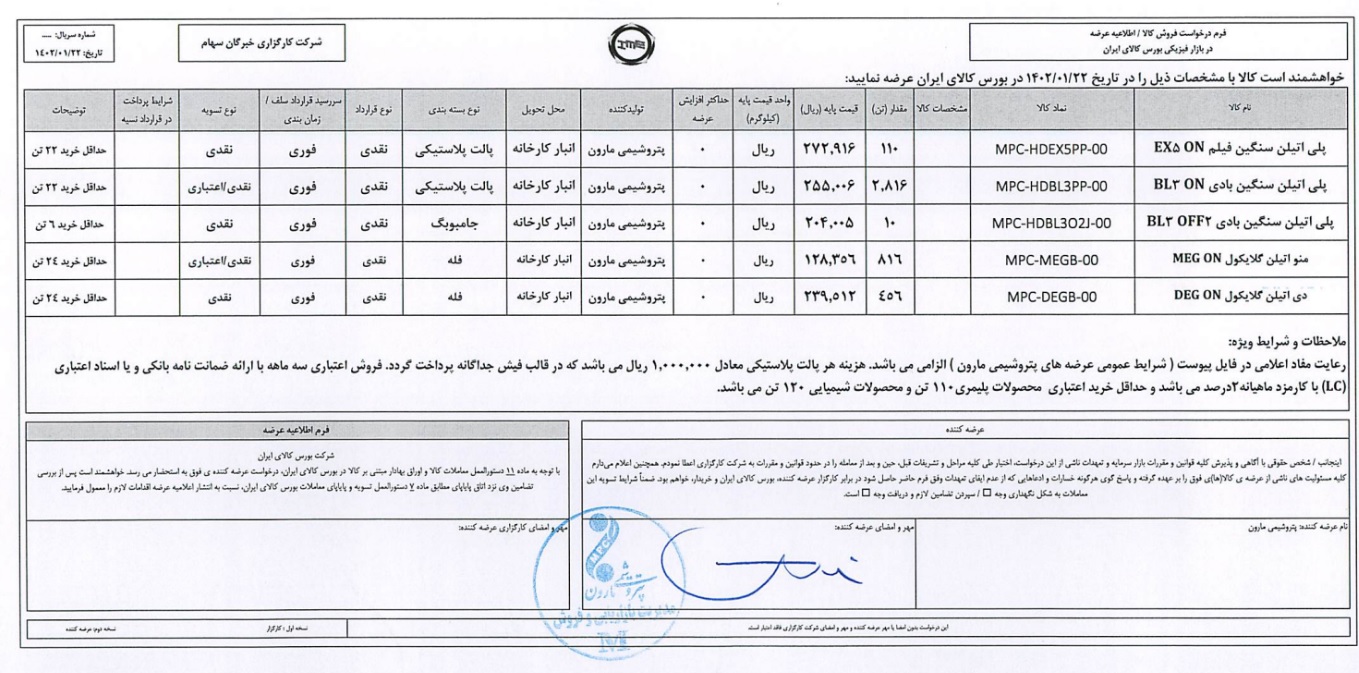 فرم درخواست فروش کالا / اطلاعیه عرضه
در بازار فیزیکی بورس کالای ایران
IME
شرکت کارگزاری خبرگان سهام
شماره سریال: .....
تاریخ: ١٤٠٢/٠١/٢٢
خواهشمند است کالا با مشخصات ذیل را در تاریخ ۱۴۰۲/۰۱/۲۲ در بورس کالای ایران عرضه نمایید:
نام کالا | نماد کالا | مشخصات کالا | مقدار (تن) | قیمت پایه (ریال) | واحد قیمت پایه (کیلوگرم) | حداکثر افزایش عرضه | تولیدکننده | محل تحویل | نوع بسته بندی | نوع قرارداد | سررسید قرارداد سلف / زمان بندی | نوع تسویه | شرایط پرداخت در قرارداد نسیه | توضیحات
پلی اتیلن سنگین فیلم EX۵ ON | MPC-HDEX5PP-00 | ۱۱۰ | ۲۷۲,۹۱۶ | ریال | ۰ | پتروشیمی مارون | انبار کارخانه | پالت پلاستیکی | نقدی | فوری | نقدی | حداقل خرید ۲۲ تن
پلی اتیلن سنگین بادی BL۳ ON | MPC-HDBL3PP-00 | ۲,۸۱۶ | ۲۵۵,۰۰۶ | ریال | ۰ | پتروشیمی مارون | انبار کارخانه | پالت پلاستیکی | نقدی | فوری | نقدی/اعتباری | حداقل خرید ۲۲ تن
پلی اتیلن سنگین بادی BL۳ OFF۲ | MPC-HDBL3O2J-00 | ۱۰ | ۲۰۴,۰۰۵ | ریال | ۰ | پتروشیمی مارون | انبار کارخانه | جامبوبگ | نقدی | فوری | نقدی | حداقل خرید ٦ تن
منو اتیلن گلایکول MEG ON | MPC-MEGB-00 | ٨١٦ | ١٢٨,٣٥٦ | ریال | ۰ | پتروشیمی مارون | انبار کارخانه | فله | نقدی | فوری | نقدی/اعتباری | حداقل خرید ٢٤ تن
دی اتیلن گلایکول DEG ON | MPC-DEGB-00 | ٤٥٦ | ٢٣٩,٥١٢ | ریال | ۰ | پتروشیمی مارون | انبار کارخانه | فله | نقدی | فوری | نقدی | حداقل خرید ٢٤ تن
ملاحظات و شرایط ویژه:
رعایت مفاد اعلامی در فایل پیوست ( شرایط عمومی عرضه های پتروشیمی مارون ) الزامی می باشد. هزینه هر پالت پلاستیکی معادل ۱,۰۰۰,۰۰۰ ریال می باشد که در قالب فیش جداگانه پرداخت گردد. فروش اعتباری سه ماهه با ارائه ضمانت نامه بانکی و یا اسناد اعتباری
(LC) با کارمزد ماهیانه۲درصد می باشد و حداقل خرید اعتباری محصولات پلیمری۱۱۰ تن و محصولات شیمیایی ۱۲۰ تن می باشد.
عرضه کننده
اینجانب / شخص حقوقی با آگاهی و پذیرش کلیه قوانین و مقررات بازار سرمایه و تعهدات ناشی از این درخواست، اختیار طی کلیه مراحل و تشریفات قبل، حین و بعد از معامله را در حدود قوانین و مقررات به شرکت کارگزاری اعطا نمودم. همچنین اعلام می‌دارم
کلیه مسئولیت های ناشی از عرضه ی کالا(ها)ی فوق را بر عهده گرفته و پاسخ گوی هرگونه خسارات و ادعاهایی که از عدم ایفای تعهدات وفق فرم حاضر حاصل شود در برابر کارگزار عرضه کننده، بورس کالای ایران و خریدار، خواهم بود. ضمناً شرایط تسویه این
معاملات به شکل نگهداری وجه □ / سپردن تضامین لازم و دریافت وجه □ است.
نام عرضه کننده: پتروشیمی مارون
مهر و امضای عرضه کننده:
فرم اطلاعیه عرضه
شرکت بورس کالای ایران
با توجه به ماده ۱۱ دستورالعمل معاملات کالا و اوراق بهادار مبتنی بر کالا در بورس کالای ایران، درخواست عرضه کننده ی فوق به استحضار می رسد. خواهشمند است پس از بررسی
تضامین وی نزد اتاق پایاپای مطابق ماده ۷ دستورالعمل تسویه و پایاپای معاملات بورس کالای ایران، نسبت به انتشار اعلامیه عرضه اقدامات لازم را معمول فرمایید.
مهر و امضای کارگزاری عرضه کننده:
MPC
پتروشیمی مارون
این درخواست بدون امضا یا مهر عرضه کننده و مهر و امضای شرکت کارگزاری فاقد اعتبار است.
نسخه اول : کارگزار
نسخه دوم: عرضه کننده